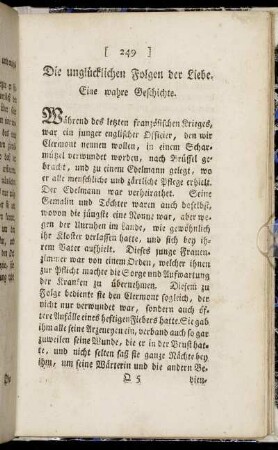 [ 249 ]
Die unglücklichen Folgen der Liebe.
Eine wahre Geschichte.
Während des letzten französischen Krieges,
war ein junger englischer Officier, den wir
Clermont nennen wollen, in einem Schar-
mützel verwundet worden, nach Brüssel ge-
bracht, und zu einem Edelmann gelegt, wo
er alle menschliche und zärtliche Pflege erhielt.
Der Edelmann war verheirathet. Seine
Gemalin und Töchter waren auch daselbst,
wovon die jüngste eine Nonne war, aber we-
gen der Unruhen im Lande, wie gewöhnlich
ihr Kloster verlassen hatte, und sich bey ih-
rem Vater aufhielt. Dieses junge Frauen-
zimmer war von einem Orden, welcher ihnen
zur Pflicht machte die Sorge und Aufwartung
der Kranken zu übernehmen. Diesem zu
Folge bediente sie den Clermont sogleich, der
nicht nur verwundet war, sondern auch öf-
tere Anfälle eines heftigen Fiebers hatte. Sie gab
ihm alle seine Arzeneyen ein, verband auch so gar
zuweilen seine Wunde, die er in der Brust hat-
te, und nicht selten saß sie ganze Nächte bey
ihm, um seine Wärterin und die andern Be-
Q 5
dien-